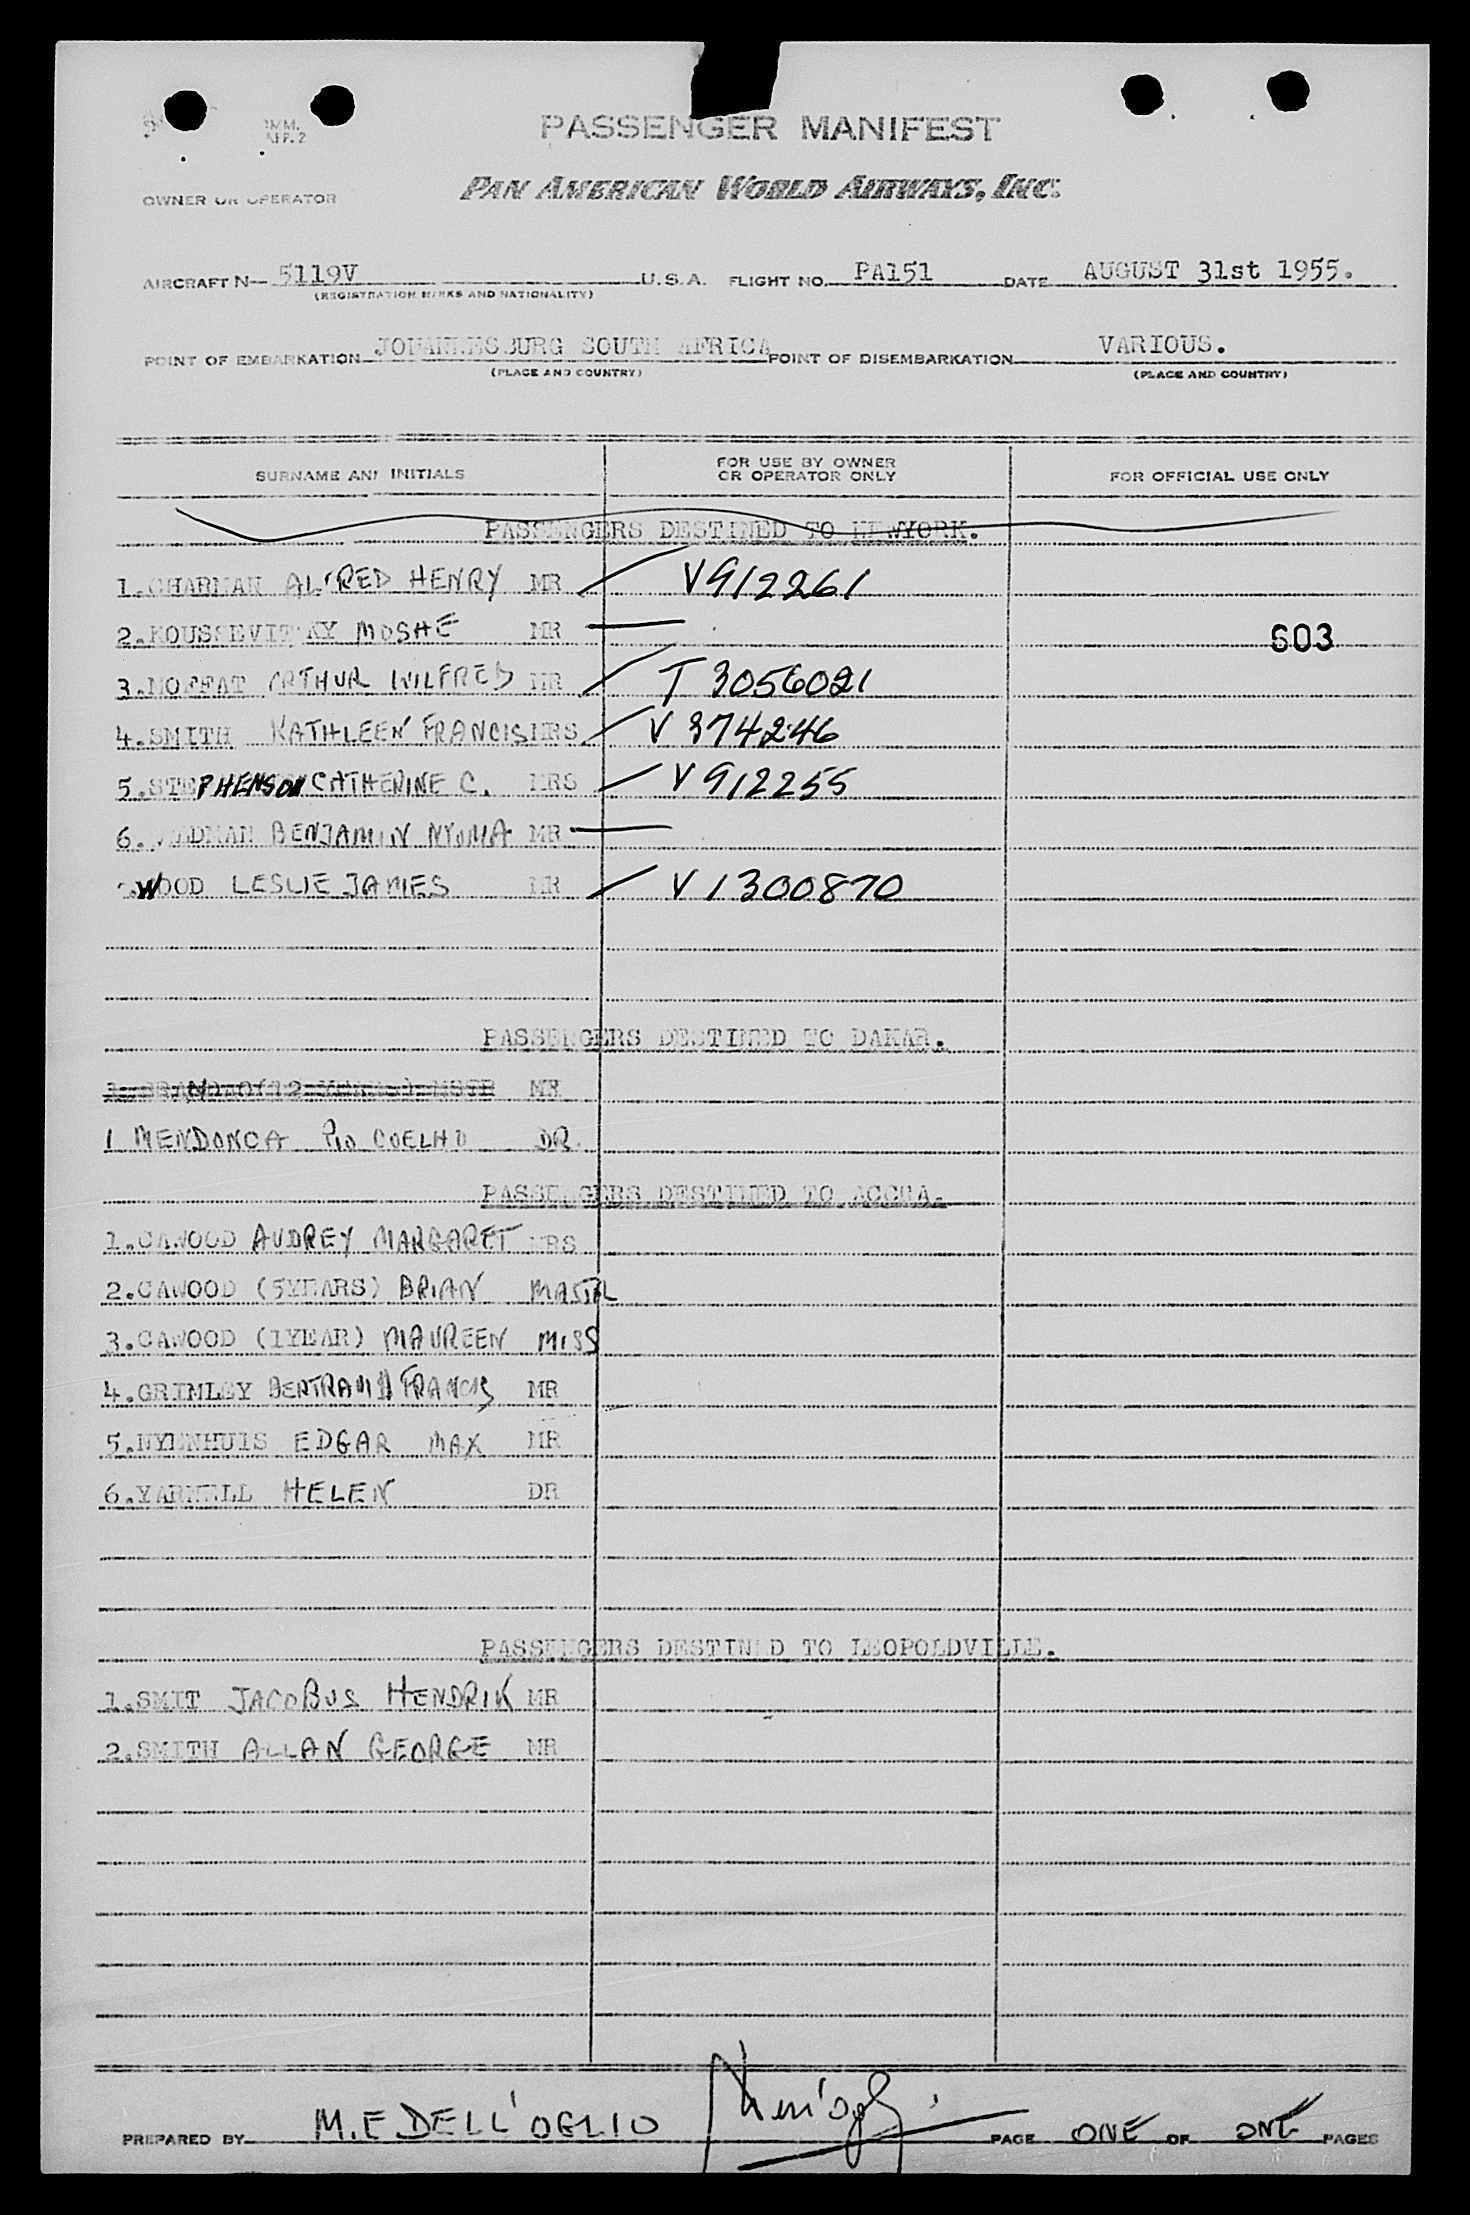 PASSENGER MANIFEST
PAN AMERICAN WORLD AIRWAYS, INC.
OWNER OR OPERATOR
AIRCRAFT N 5119V U.S.A. FLIGHT NO. PA151 DATE AUGUST 31st 1955.
(REGISTRATION MARKS AND NATIONALITY)
POINT OF EMBARKATION JOHANNESBURG SOUTH AFRICA POINT OF DISEMBARKATION VARIOUS.
(PLACE AND COUNTRY) (PLACE AND COUNTRY)
SURNAME AND INITIALS FOR USE BY OWNER OR OPERATOR ONLY FOR OFFICIAL USE ONLY
PASSENGERS DESTINED TO NEWYORK.
1.CHARMAN ALFRED HENRY MR V912261
2.KOUSSEVITSKY MOSHE MR 603
3.MOFFAT ARTHUR WILFRED MR T 3056021
4.SMITH KATHLEEN FRANCIS MRS V 374246
5.STEPHENSON CATHERINE C. MRS V 912255
6. BENJAMIN MR
WOOD LESLIE JAMES MR V 1300870
PASSENGERS DESTINED TO DAKAR.
MR
1 MENDONCA PIO COELHO DR.
PASSENGERS DESTINED TO ACCRA.
1.CAWOOD AUDREY MARGARET MRS
2.CAWOOD (5YEARS) BRIAN MASTR
3.CAWOOD (1YEAR) MAUREEN MISS
4.GRIMLEY BERTRAM FRANCIS MR
5.NYENHUIS EDGAR MAX MR
6.YARNELL HELEN DR
PASSENGERS DESTINED TO LEOPOLDVILLE.
1.SMIT JACOBUS HENDRIK MR
2.SMITH ALLAN GEORGE MR
PREPARED BY M.E DELL'OGLIO PAGE ONE OF ONE PAGES